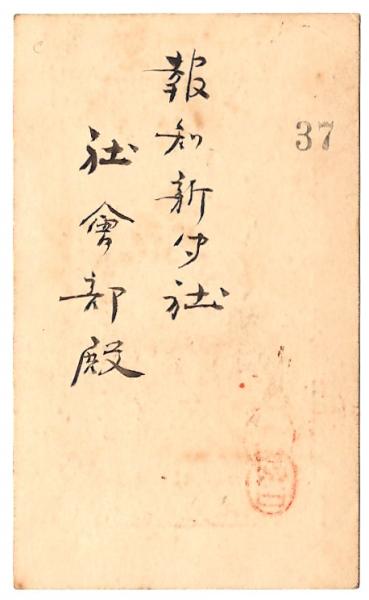 37
報知新聞社
社會部殿